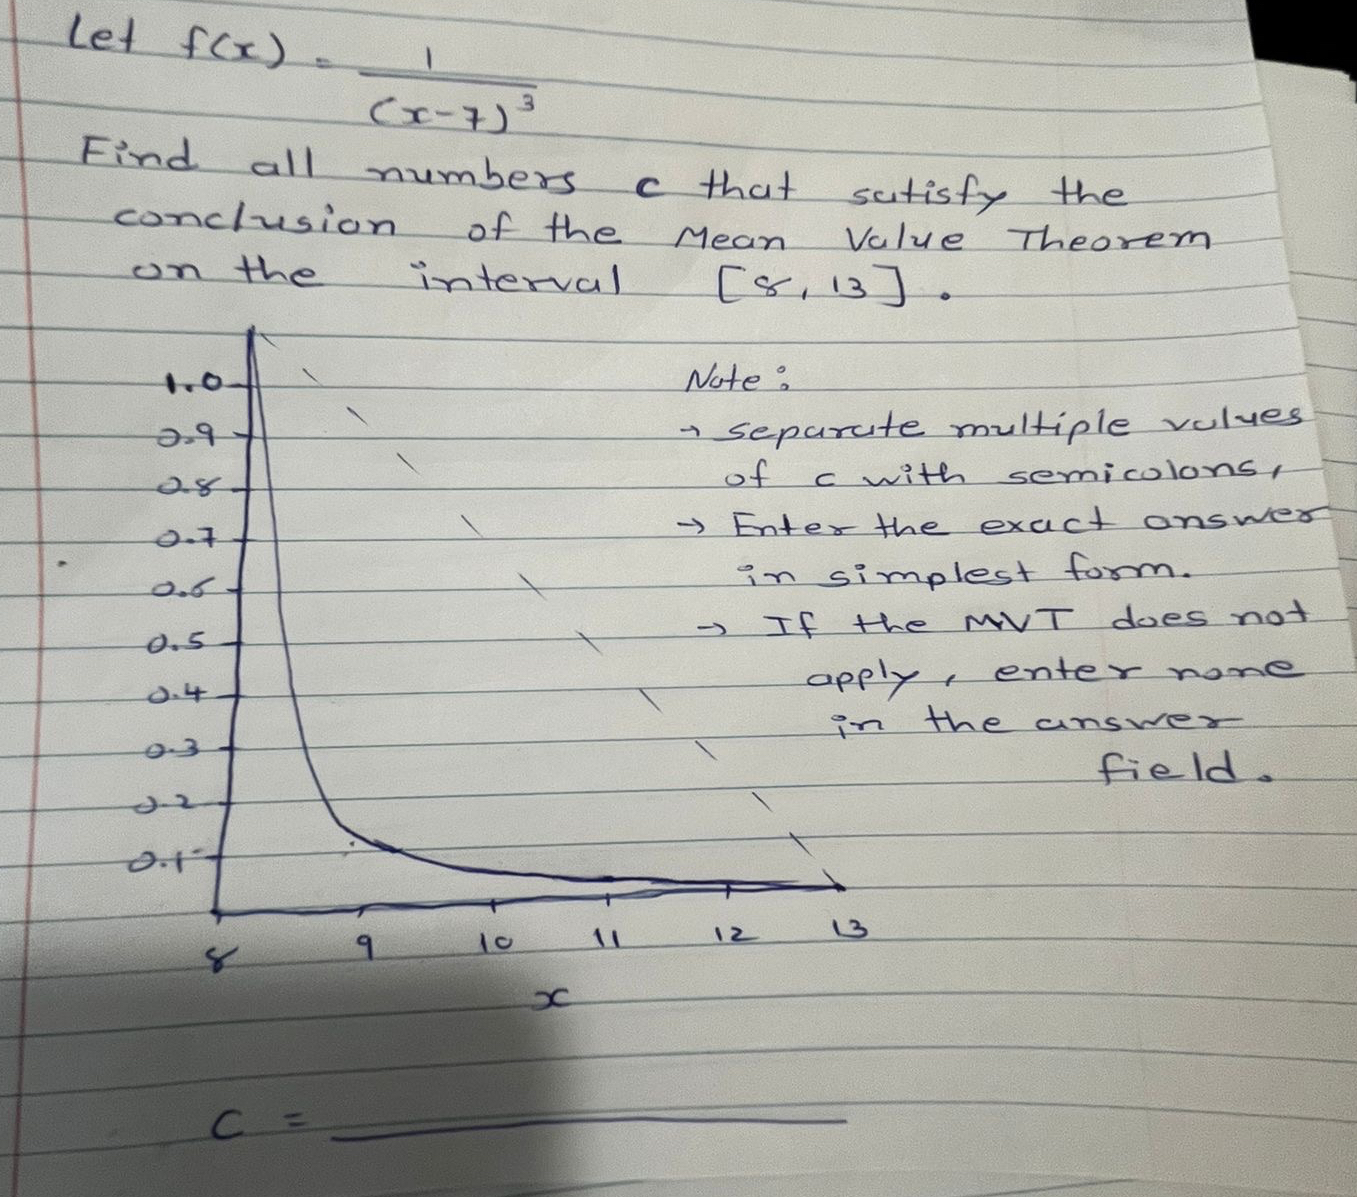 Let f(x) = 1
(x-7)³
Find all numbers c that satisfy the
conclusion of the Mean Value Theorem
on the interval [8, 13].
1.0
0.9
0.8
0.7
0.6
0.5
0.4
0.3
0.2
0.1
8 9 10 11 12 13
x
Note:
→ separate multiple values
of c with semicolons,
→ Enter the exact answer
in simplest form.
→ If the MVT does not
apply, enter none
in the answer
field.
C =